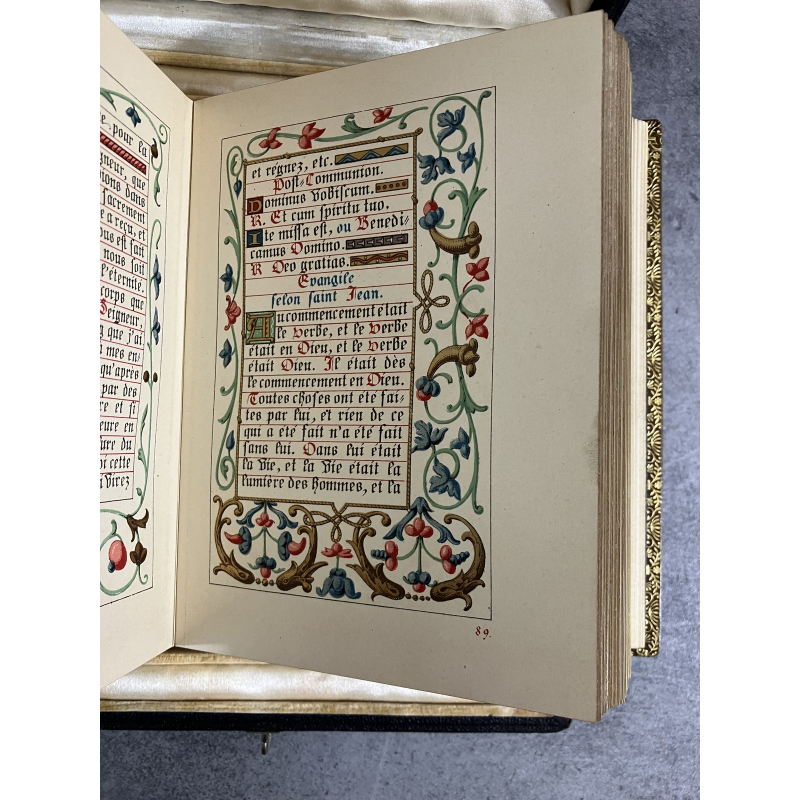 e pour la
gneur, que
ions dans
Sacrement
e a reçu, et
us est fait
nous soit
l'éternité.
corps que
Seigneur,
g que j'ai
mes en-
qu'après
par des
re et si
eure en
ure du
oi cette
Virez
et régnez, etc.
Post-Communion.
Dominus vobiscum.
R. Et cum spiritu tuo.
Ite missa est, ou Benedi-
camus Domino.
R Deo gratias.
Evangile
selon saint Jean.
Au commencement était
le Verbe, et le Verbe
était en Dieu, et le Verbe
était Dieu. Il était dès
le commencement en Dieu.
Toutes choses ont été fai-
tes par lui, et rien de ce
qui a été fait n'a été fait
sans lui. Dans lui était
la Vie, et la Vie était la
lumière des hommes, et la
89.